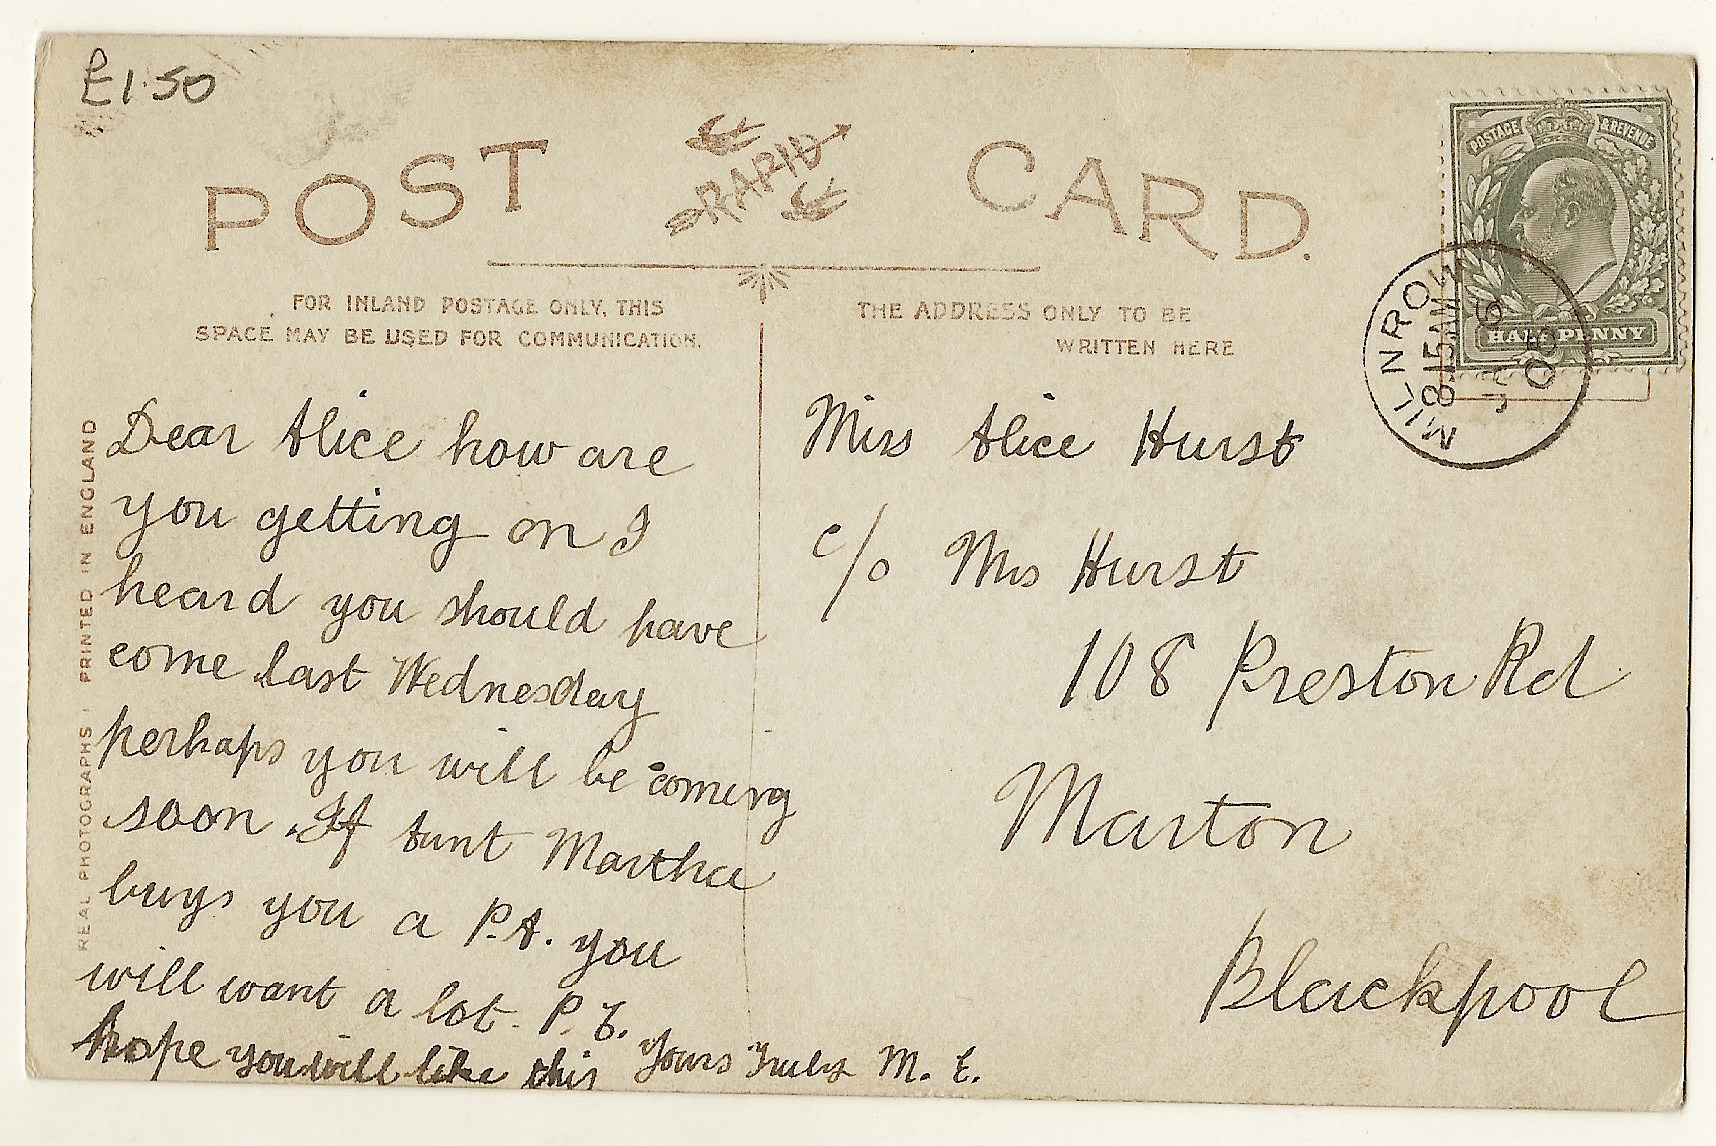 £1.50
POST RAPID CARD.
FOR INLAND POSTAGE ONLY, THIS
SPACE MAY BE USED FOR COMMUNICATION.
THE ADDRESS ONLY TO BE
WRITTEN HERE
POSTAGE & REVENUE
HALFPENNY
MILNROW
8.15 AM
09
REAL PHOTOGRAPHS PRINTED IN ENGLAND
Dear Alice how are
you getting on I
heard you should have
come last Wednesday
perhaps you will be coming
soon. If Aunt Martha
buys you a P.A. you
will want a lot. P.
hope you will like this Yours Truly M. E.
Miss Alice Hurst
c/o Mrs Hurst
108 Preston Rd
Marton
Blackpool